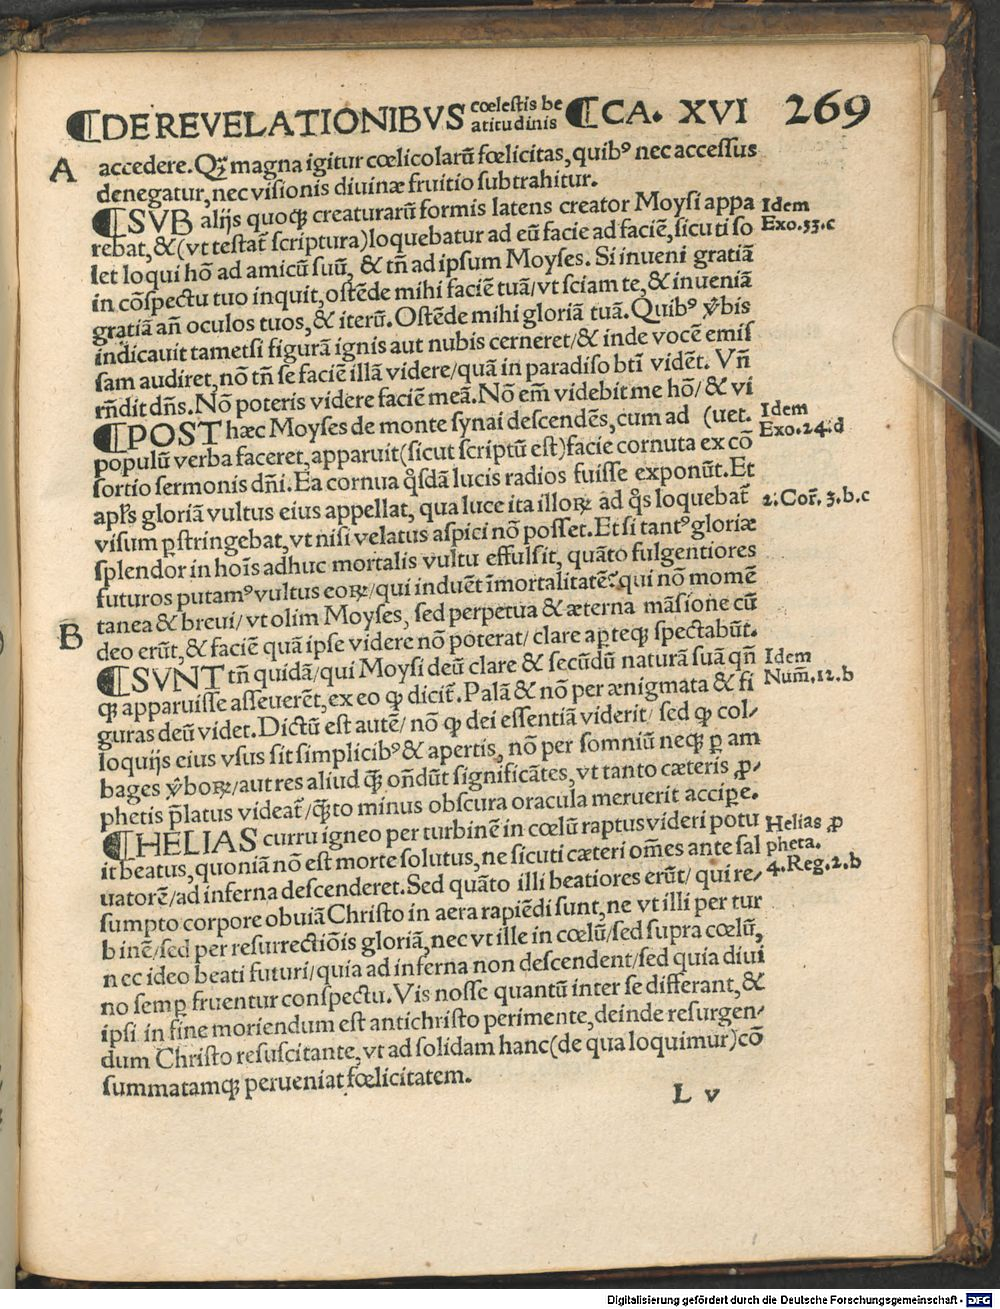 ¶DE REVELATIONIBVS cœlestis beatitudinis ¶CA. XVI 269
A accedere. Qꝫ magna igitur cœlicolarũ fœlicitas, quibꝰ nec accessus
denegatur, nec visionis diuinæ fruitio subtrahitur.
¶SVB alijs quoqꝫ creaturarũ formis latens creator Moysi appa Idem
rebat, &(vt testat̃ scriptura)loquebatur ad eũ facie ad faciẽ, sicuti so Exo.33.c
let loqui hõ ad amicũ suũ, & tñ ad ipsum Moyses. Si inueni gratiã
in cõspectu tuo inquit, ostẽde mihi faciẽ tuã/vt sciam te, & inueniã
gratiã añ oculos tuos, & iterũ. Ostẽde mihi gloriã tuã. Quibꝰ v̂bis
indicauit tametsi figurã ignis aut nubis cerneret/& inde vocẽ emis
sam audiret, nõ tñ se faciẽ illã videre/quã in paradiso bti vidẽt. Vñ
rñdit dñs. Nõ poteris videre faciẽ meã. Nõ em̃ videbit me hõ/ & vi
¶POST hæc Moyses de monte synai descendẽs, cum ad (uet. Idem
populũ verba faceret, apparuit(sicut scriptũ est)facie cornuta ex cõ Exo.24.d
sortio sermonis dñi. Ea cornua q̊sdã lucis radios fuisse exponũt. Et
apl's gloriã vultus eius appellat, qua luce ita illoꝝ ad q̊s loquebat̃ 2.Cor̃. 3.b.c
visum ꝑstringebat, vt nisi velatus aspici nõ posset. Et si tantꝰ gloriæ
splendor in hoĩs adhuc mortalis vultu effulsit, quãto fulgentiores
futuros putamꝰ vultus eoꝝ/qui induẽt ĩmortalitatẽ? qui nõ momẽ
B tanea & breui/ vt olim Moyses, sed perpetua & æterna mãsione cũ
deo erũt, & faciẽ quã ipse videre nõ poterat/ clare aꝑteqꝫ spectabũt.
¶SVNT tñ quidã/qui Moysi deũ clare & secũdũ naturã suã qñ Idem
qꝫ apparuisse asseuerẽt, ex eo ꝙ dicit̃. Palã & nõ per ænigmata & fi Num̃.12.b
guras deũ videt. Dictũ est autẽ/ nõ ꝙ dei essentiã viderit/ sed ꝙ col/
loquijs eius vsus sit simplicibꝰ & apertis, nõ per somniũ neqꝫ ꝑ am
bages v̂boꝝ/aut res aliud q̃ꝫ oñdũt significãtes, vt tanto cæteris ꝓ/
phetis p̃latus videat̃/q̃ꝫto minus obscura oracula meruerit acciꝑe.
¶HELIAS curru igneo per turbinẽ in cœlũ raptus videri potu Helias ꝓ
it beatus, quoniã nõ est morte solutus, ne sicuti cæteri om̃es ante sal pheta.
uatorẽ/ad inferna descenderet. Sed quãto illi beatiores erũt/ qui re/ 4.Reg.2.b
sumpto corpore obuiã Christo in aera rapiẽdi sunt, ne vt illi per tur
binẽ/sed per resurrectiõis gloriã, nec vt ille in cœlũ/sed supra cœlũ,
nec ideo beati futuri/quia ad inferna non descendent/sed quia diui
no semꝑ fruentur conspectu. Vis nosse quantũ inter se differant, &
ipsi in fine moriendum est antichristo perimente, deinde resurgen/
dum Christo resuscitante, vt ad solidam hanc(de qua loquimur)cõ
summatamqꝫ perueniat fœlicitatem.
L v
Digitalisierung gefördert durch die Deutsche Forschungsgemeinschaft - DFG